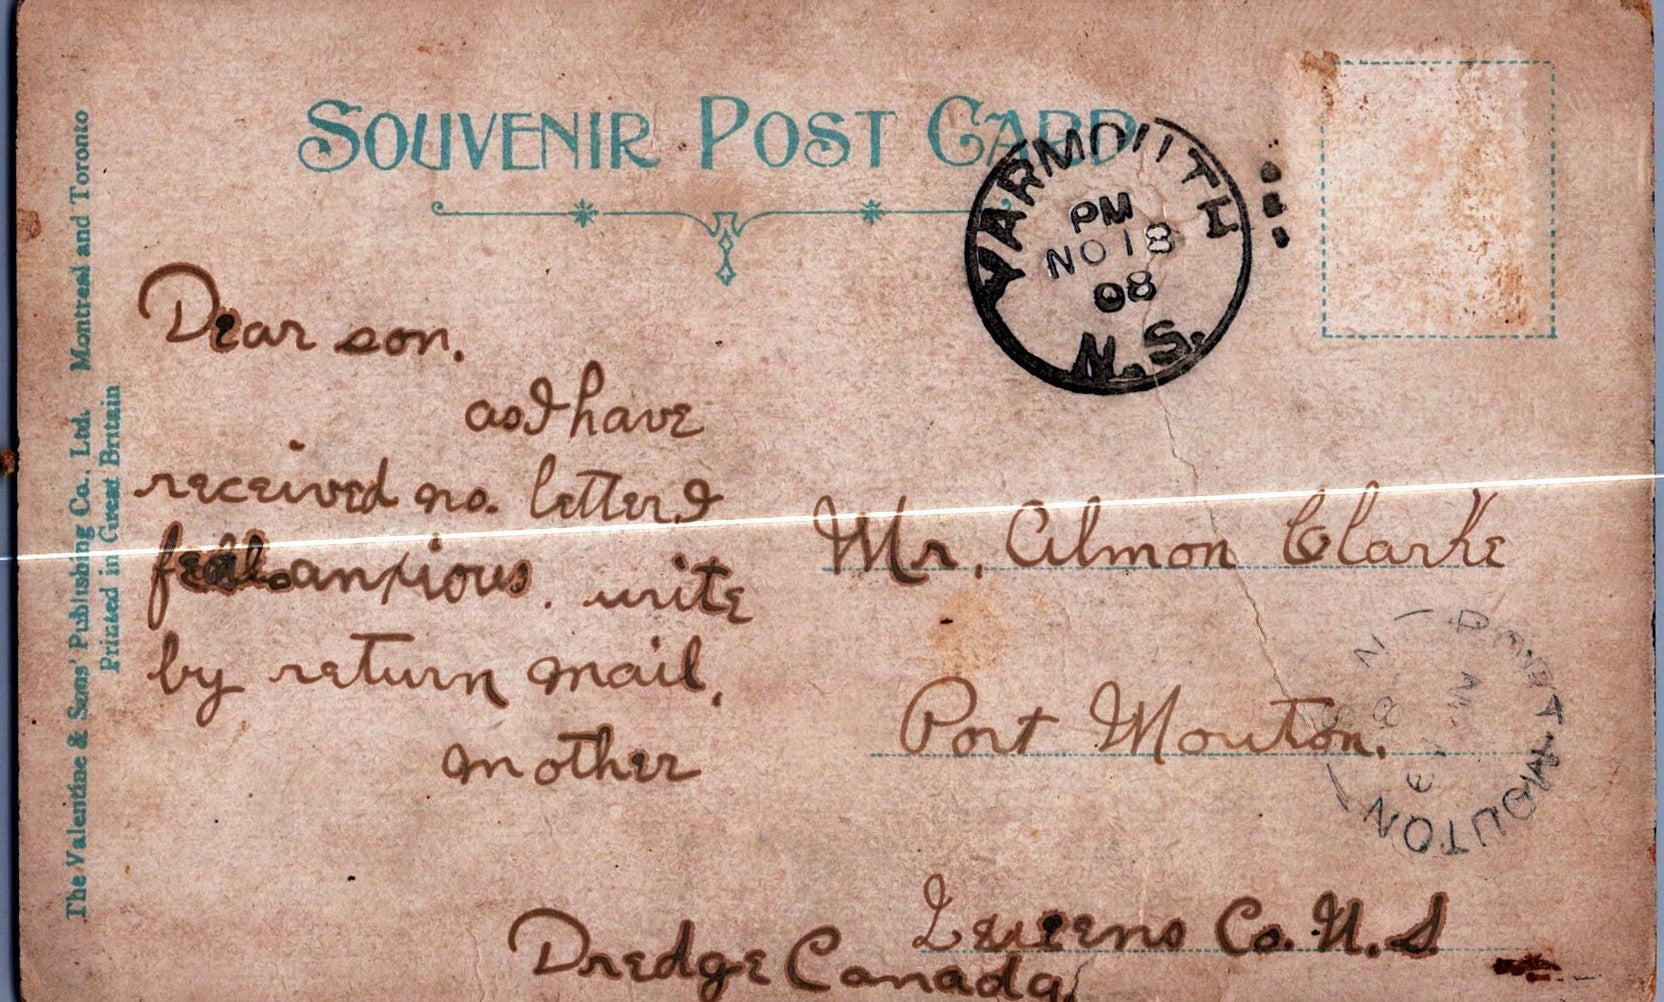 SOUVENIR POST CARD
YARMOUTH
PM
NO 18
08
N.S.
The Valentine & Sons' Publishing Co., Ltd. Montreal and Toronto
Printed in Great Britain
Dear son.
as I have
received no. letter I
feel anxious. write
by return mail,
mother
Mr. Almon Clarke
Port Mouton.
Queens Co. N.S
Dredge Canada.
PORT MOUTON
AM